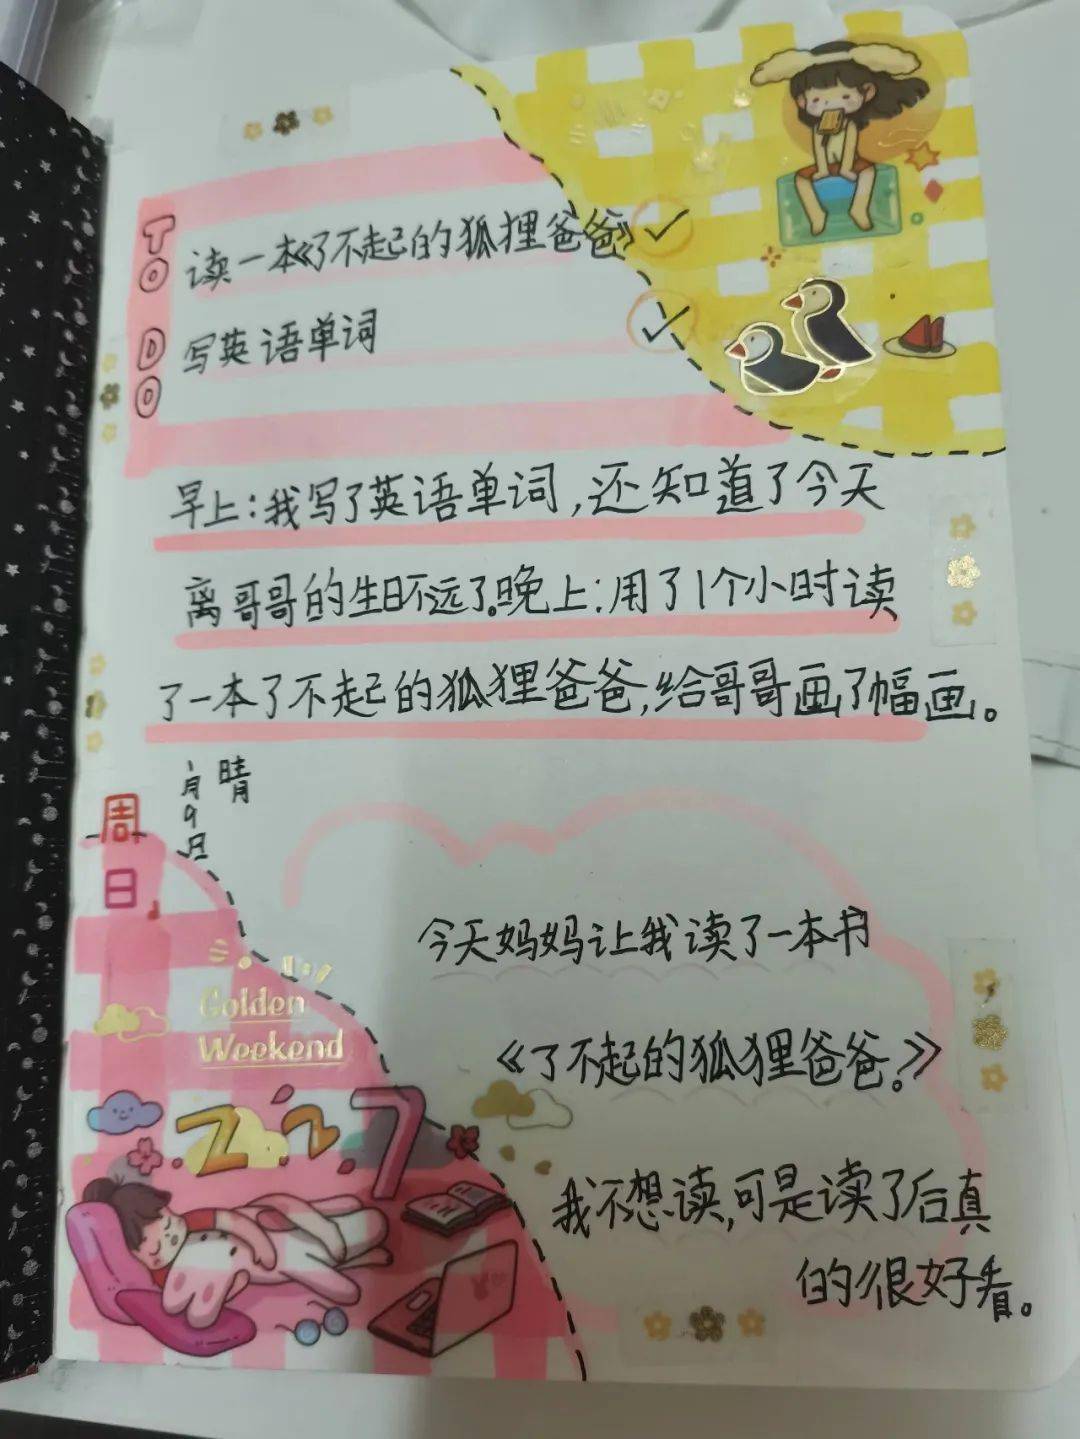 TO DO
读一本《了不起的狐狸爸爸》✓
写英语单词 ✓
早上:我写了英语单词,还知道了今天
离哥哥的生日不远了。晚上:用了1个小时读
了一本了不起的狐狸爸爸,给哥哥画了幅画。
1月9日 晴
周日
今天妈妈让我读了一本书
《了不起的狐狸爸爸。》
我不想读,可是读了后真
的很好看。
Golden
Weekend